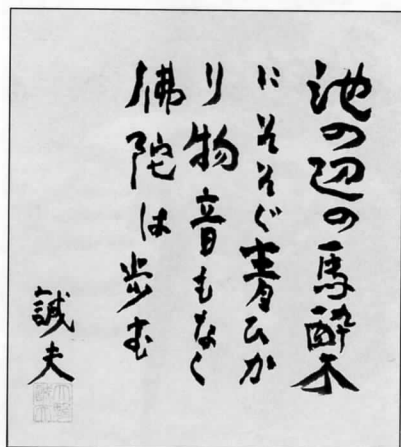 池の辺の馬酔木
にそそぐ青ひか
り物音もなく
佛陀は歩む
誠夫